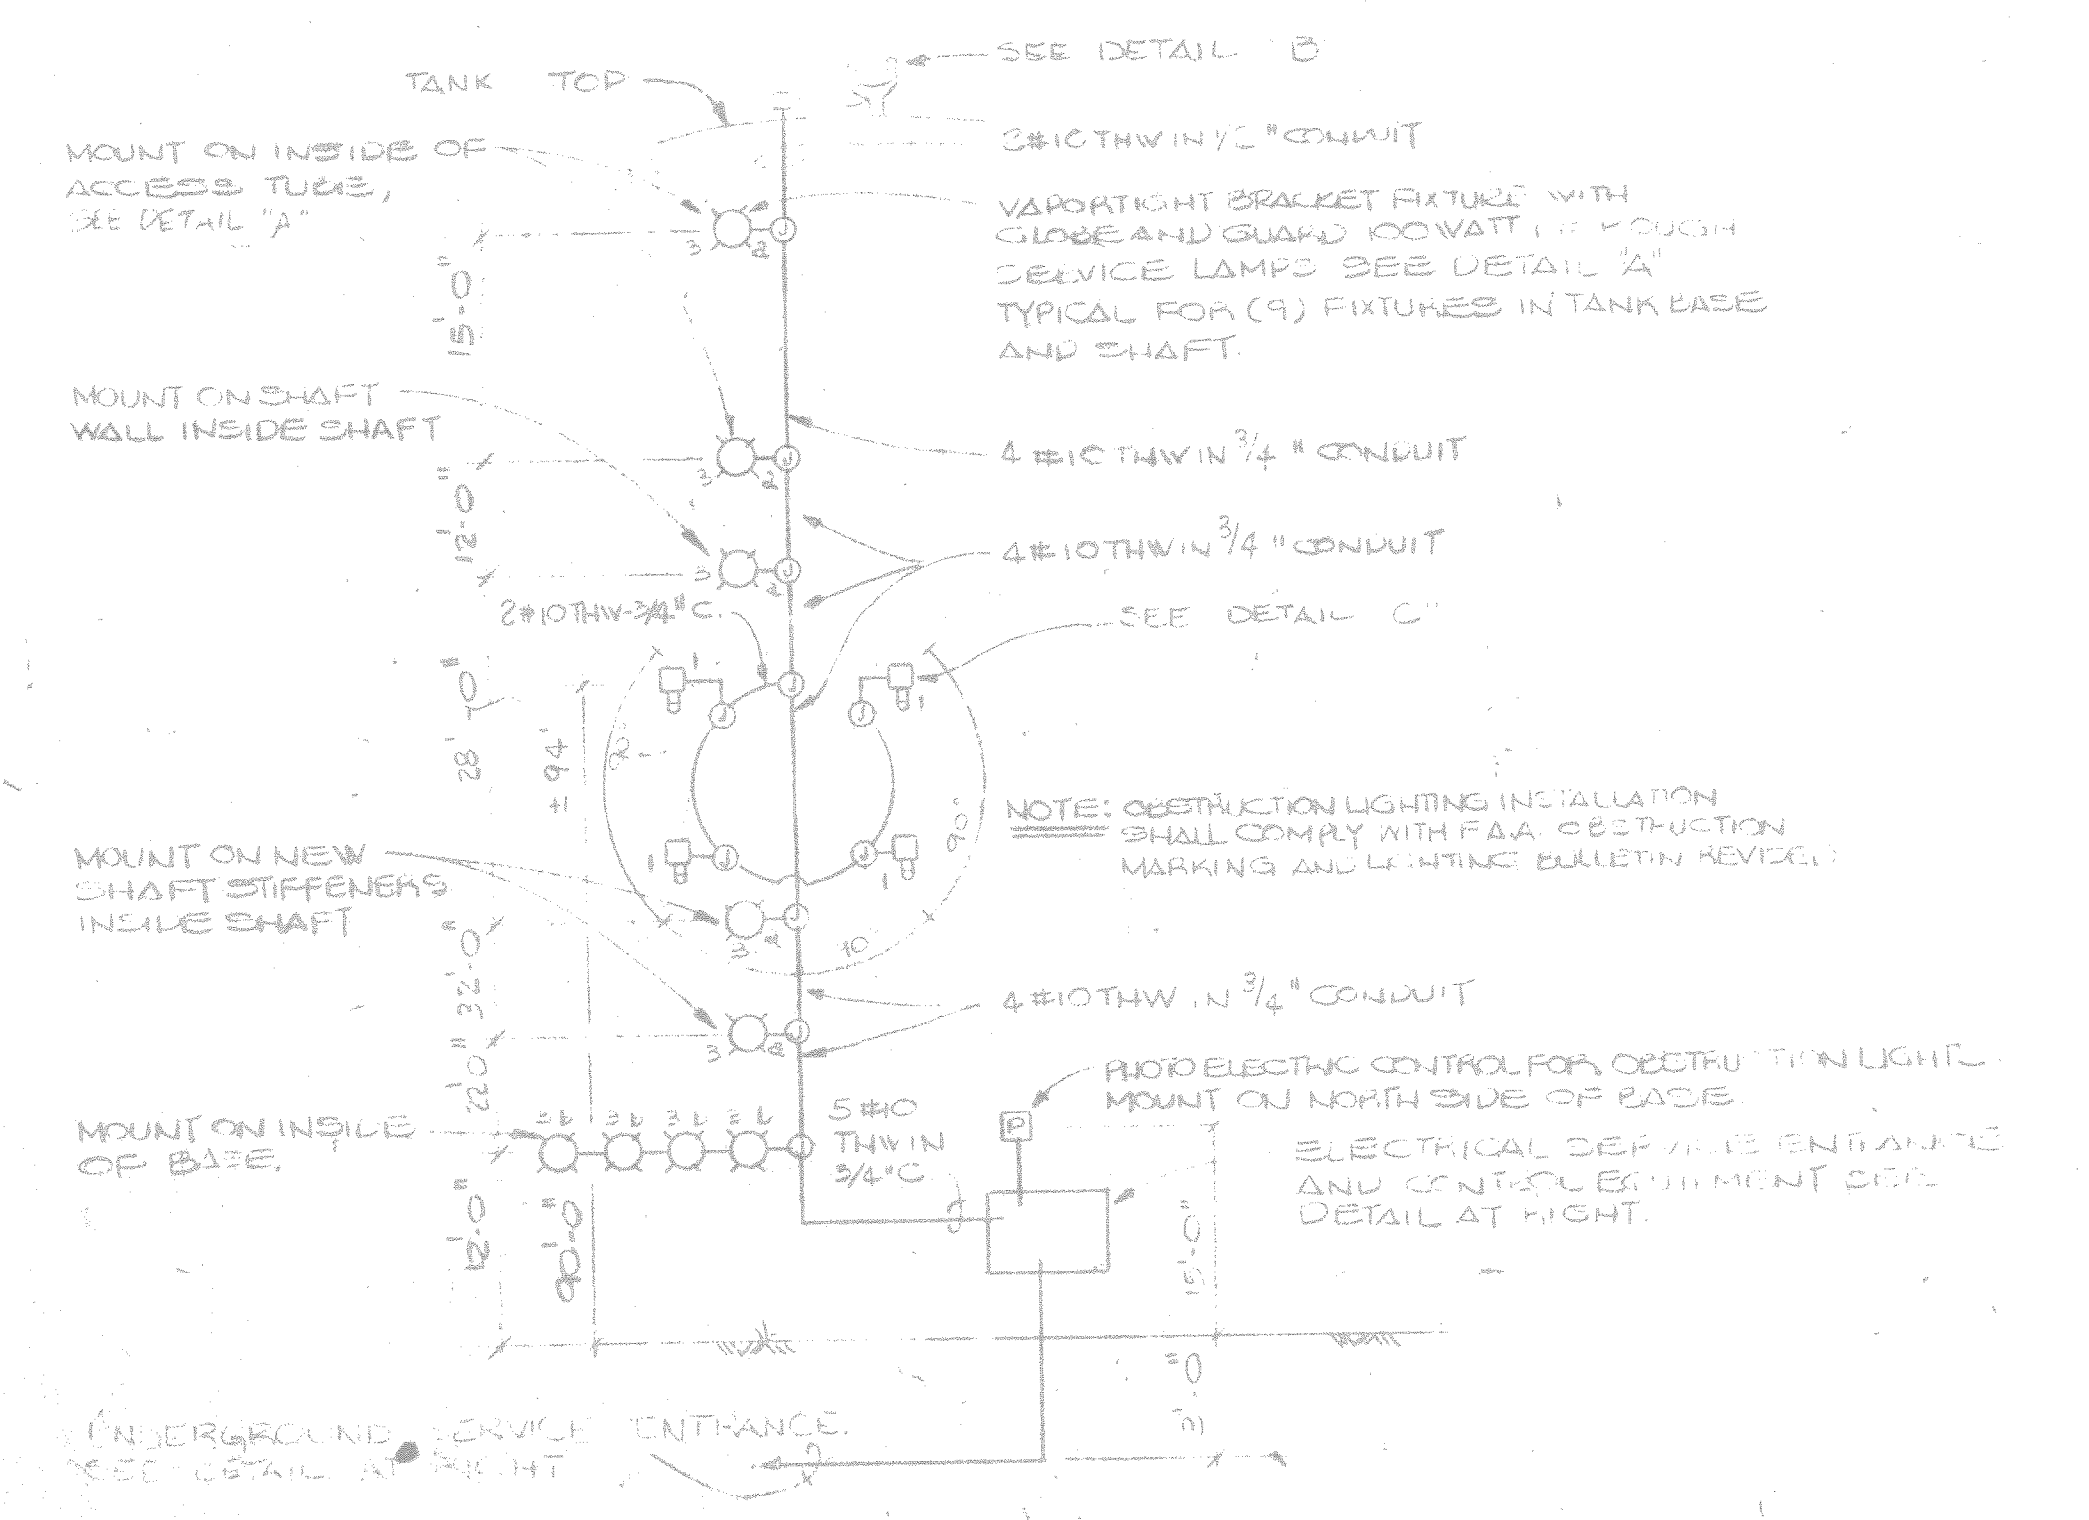 SEE DETAIL B
TANK TOP
MOUNT ON INSIDE OF
ACCESS TUBE,
SEE DETAIL "A"
THW IN CONDUIT
VAPORTIGHT BRACKET FIXTURE WITH
GLOBE AND GUARD 100 WATT ROUGH
SERVICE LAMPS SEE DETAIL "A"
TYPICAL FOR (9) FIXTURES IN TANK BASE
AND SHAFT.
3 2
15'-0"
MOUNT ON SHAFT
WALL INSIDE SHAFT
4 #10 THW IN 3/4" CONDUIT
3 2
12'-0"
4 #10 THW IN 3/4" CONDUIT
3 2
2#10THW-3/4"C.
SEE DETAIL C"
1 1
28'-0"
±94'
90°
90°
NOTE: OBSTRUCTION LIGHTING INSTALLATION
SHALL COMPLY WITH F.A.A. OBSTRUCTION
MARKING AND LIGHTING BULLETIN REVISED
MOUNT ON NEW
SHAFT STIFFENERS
INSIDE SHAFT
1 1
3 2
90
32'-0"
4 #10 THW IN 3/4" CONDUIT
3 2
22'0"
PHOTO ELECTRIC CONTROL FOR OBSTRUCTION LIGHT
MOUNT ON NORTH SIDE OF BASE.
P
MOUNT ON INSIDE
OF BASE.
5 #10
THW IN
3/4"C
ELECTRICAL SERVICE ENTRANCE
AND CONTROL EQUIPMENT SEE
DETAIL AT RIGHT.
12'-0"
90'-0"
15'-0"
UNDERGROUND SERVICE ENTRANCE.
SEE DETAIL AT RIGHT